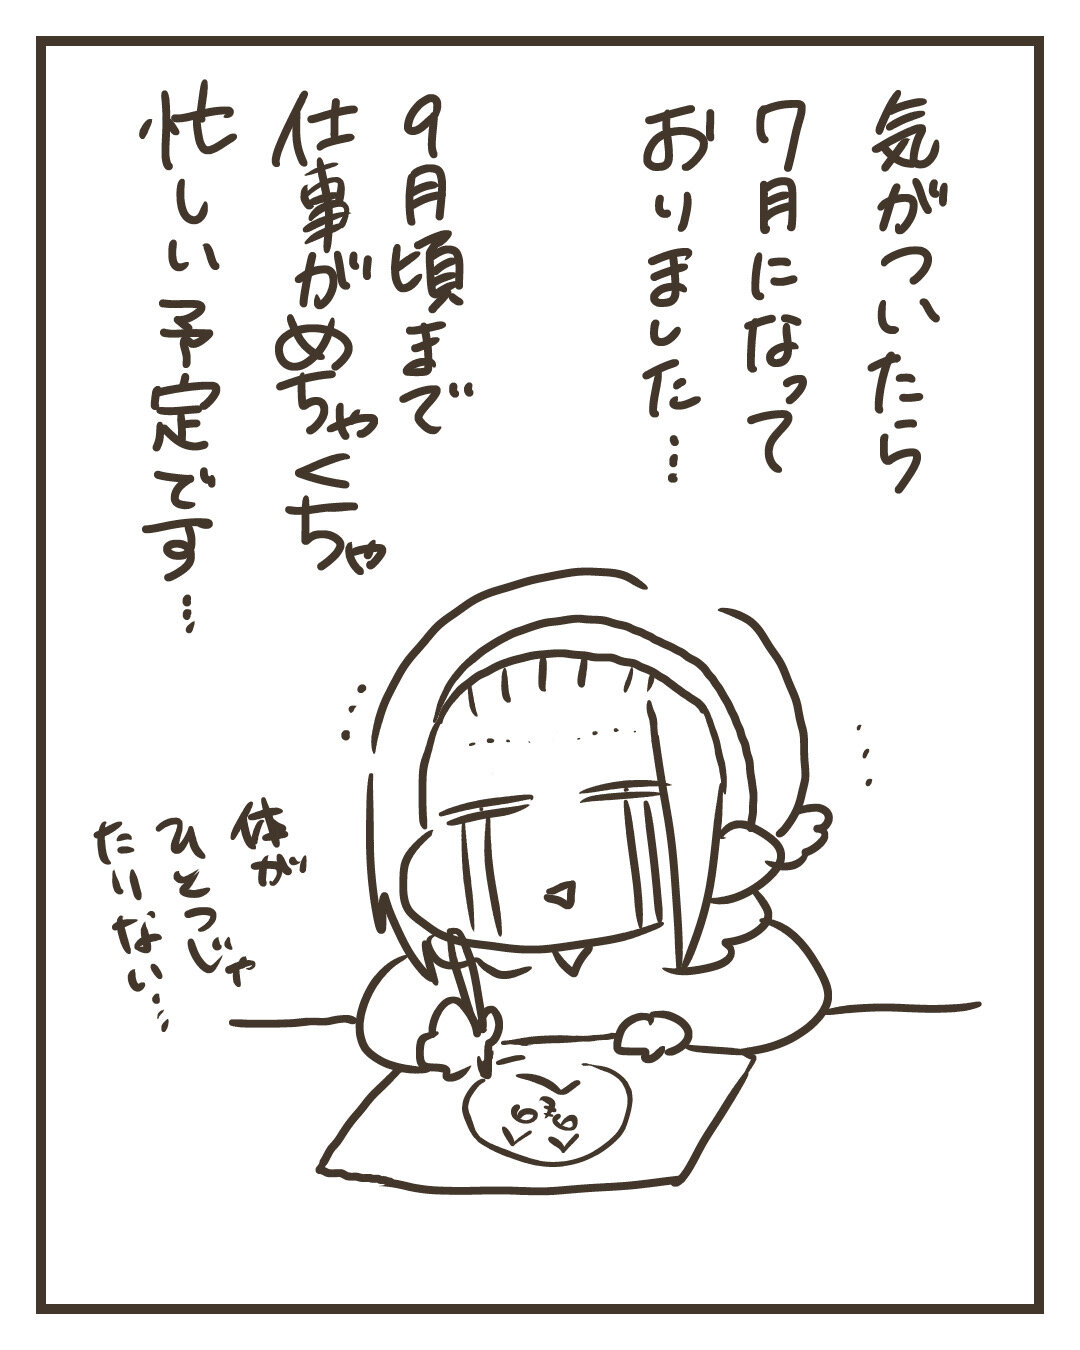 気がついたら
7月になって
おりました…
9月頃まで
仕事がめちゃくちゃ
忙しい予定です…
体が
ひとつじゃ
たりない…